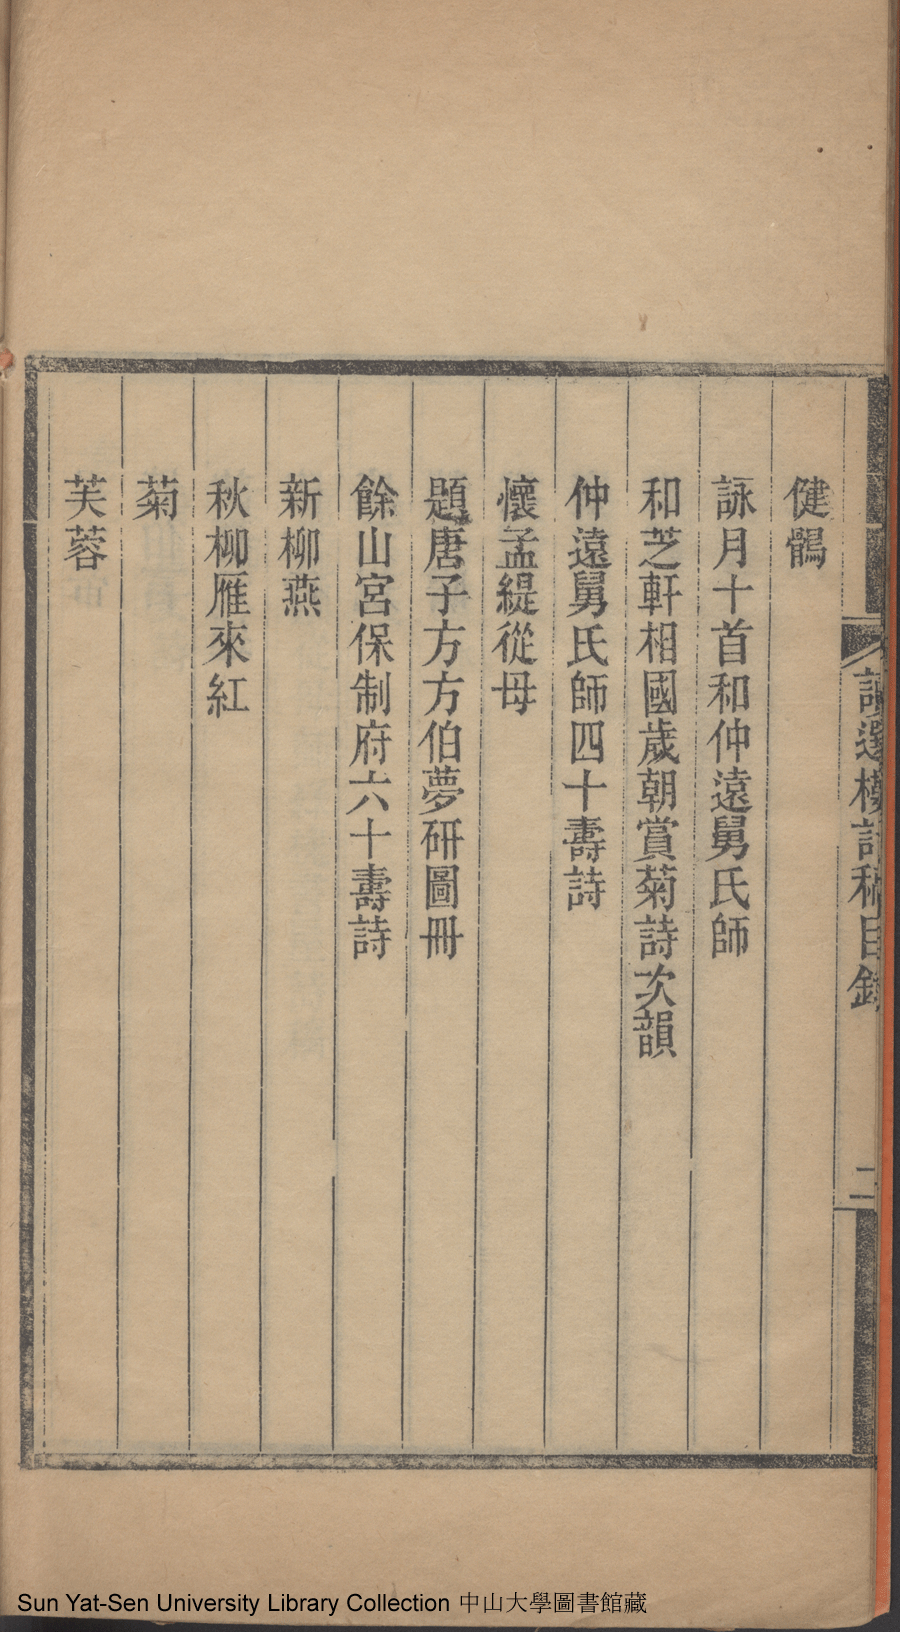 健鶻
詠月十首和仲遠舅氏師
和芝軒相國歲朝賞菊詩次韻
仲遠舅氏師四十壽詩
懷孟緹從母
題唐子方方伯夢研圖冊
餘山宮保制府六十壽詩
新柳燕
秋柳雁來紅
菊
芙蓉
讀選樓詩稿目錄
二
Sun Yat-Sen University Library Collection 中山大學圖書館藏